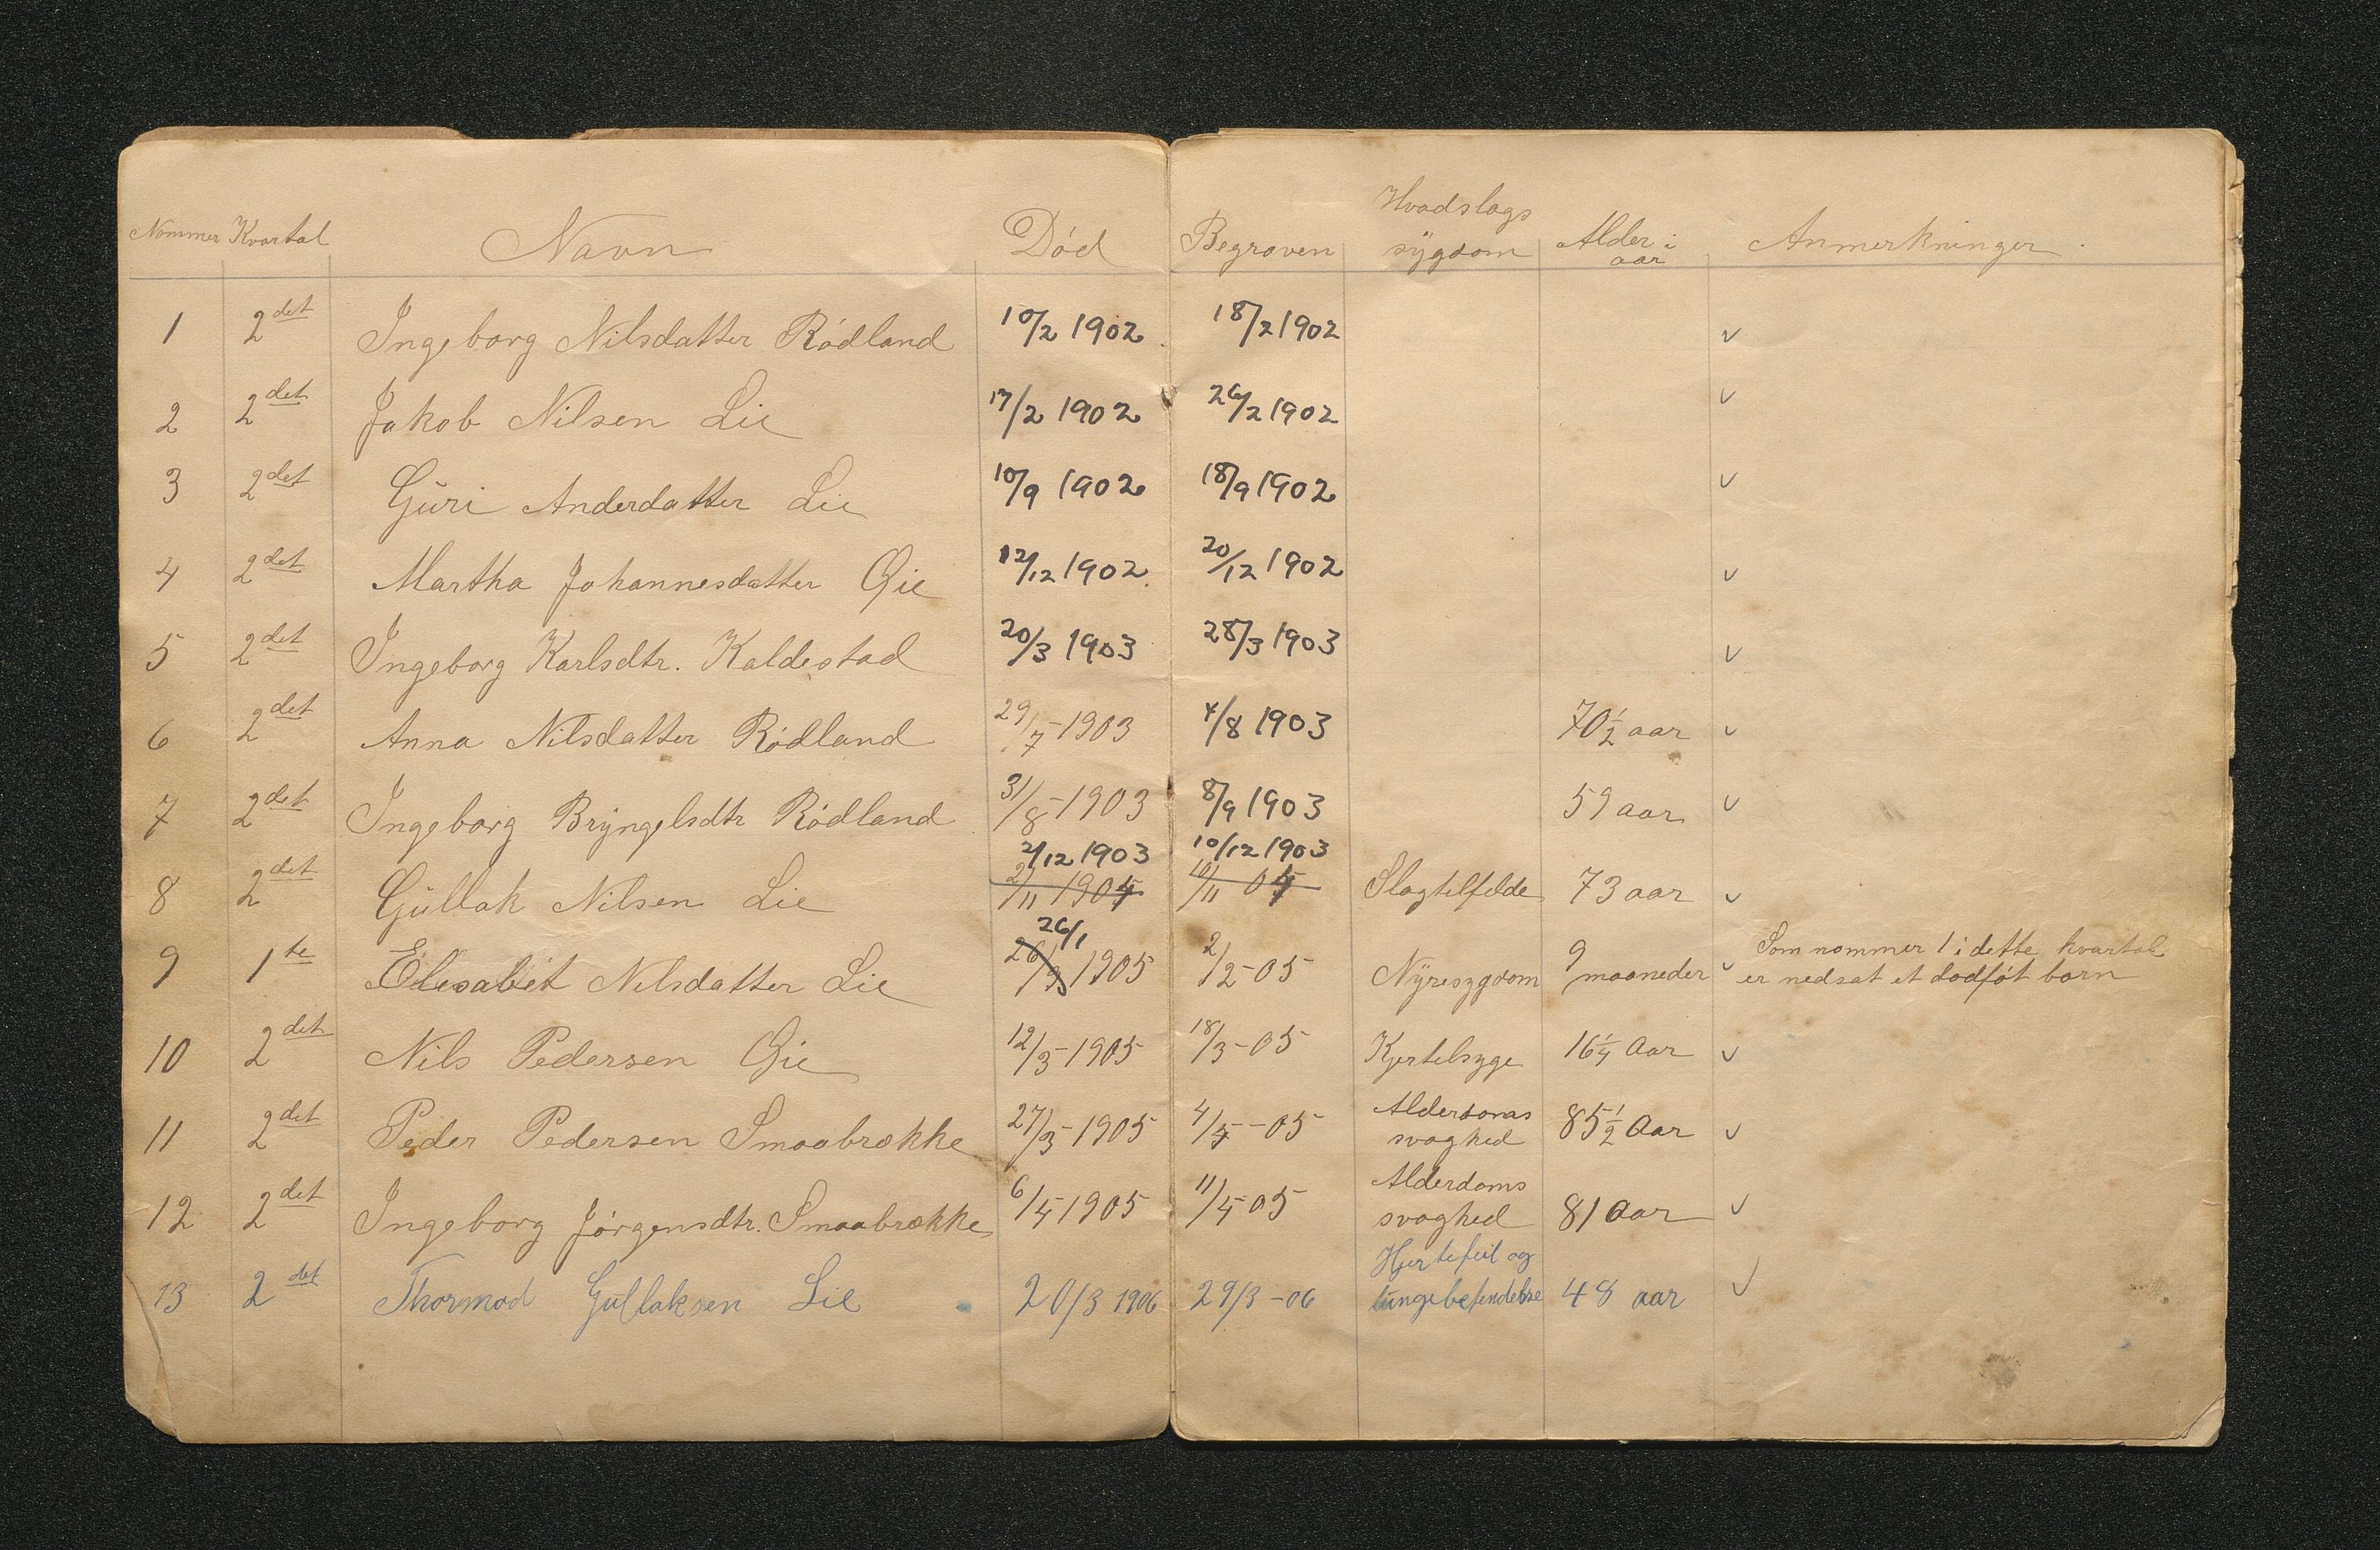 Nommer Kvartal Navn Död Begraven Hvadslags sÿgdom Alder i aar Anmerkninger
1 2det Ingeborg Nilsdatter Rödland 10/2 1902 18/2 1902 v
2 2det Jakob Nilsen Lie 17/2 1902 26/2 1902 v
3 2det Guri Anderdatter Lie 10/9 1902 18/9 1902 v
4 2det Martha Johannesdatter Øie 12/12 1902 20/12 1902 v
5 2det Ingeborg Karlsdtr. Kaldestad 20/3 1903 28/3 1903 v
6 2det Anna Nilsdatter Rödland 29/7-1903 4/8 1903 70½ aar v
7 2det Ingeborg Brÿngelsdtr Rödland 31/8-1903 8/9 1903 59 aar v
2/12 1903 10/12 1903
8 2det Gullak Nilsen Lie 2/11 1904 10/11 04 Slagtilfelde 73 aar v
26/1
9 1te Elesabet Nilsdatter Lie 26/3 1905 2/2-05 Nÿresygdom 9 maaneder v Som nommer 1 i dette kvartal
er nedsat et dodföt barn
10 2det Nils Pedersen Øie 12/3-1905 18/3-05 Kjertelsyge 16¼ Aar v
11 2det Peder Pedersen Smaabrække 27/3-1905 4/4-05 Alderdoms svaghed 85½ Aar v
12 2det Ingeborg Jörgensdtr. Smaabrække 6/4 1905 11/4-05 Alderdoms svaghed 81 Aar v
13 2det Thormod Gullaksen Lie 20/3 1906 29/3-06 Hjertefeil og lungebetendelse 48 aar v